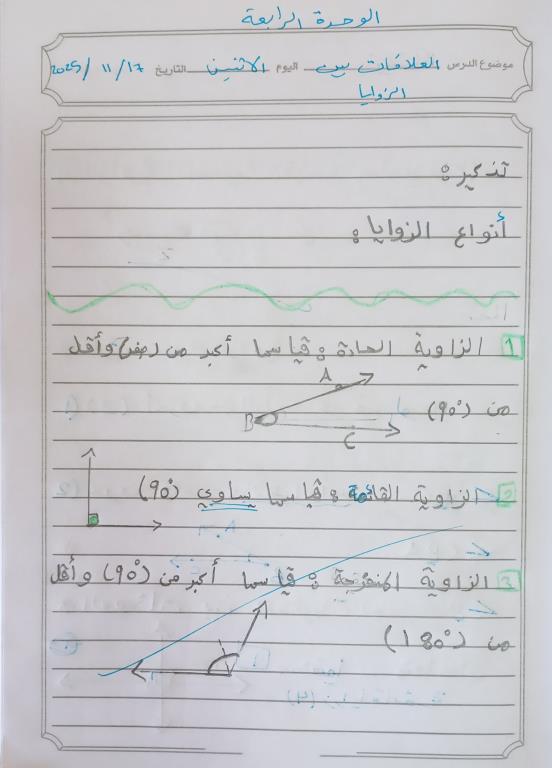 الوحدة الرابعة
موضوع الدرس العلاقات بين اليوم الاثنين التاريخ 17/11/2025
الزوايا
تذكير:
أنواع الزوايا:
1 الزاوية الحادة: قياسها أكبر من صفر وأقل
من (90°)
A
B
C
2 الزاوية القائمة: قياسها يساوي (90°)
3 الزاوية المنفرجة: قياسها أكبر من (90°) وأقل
من (180°)